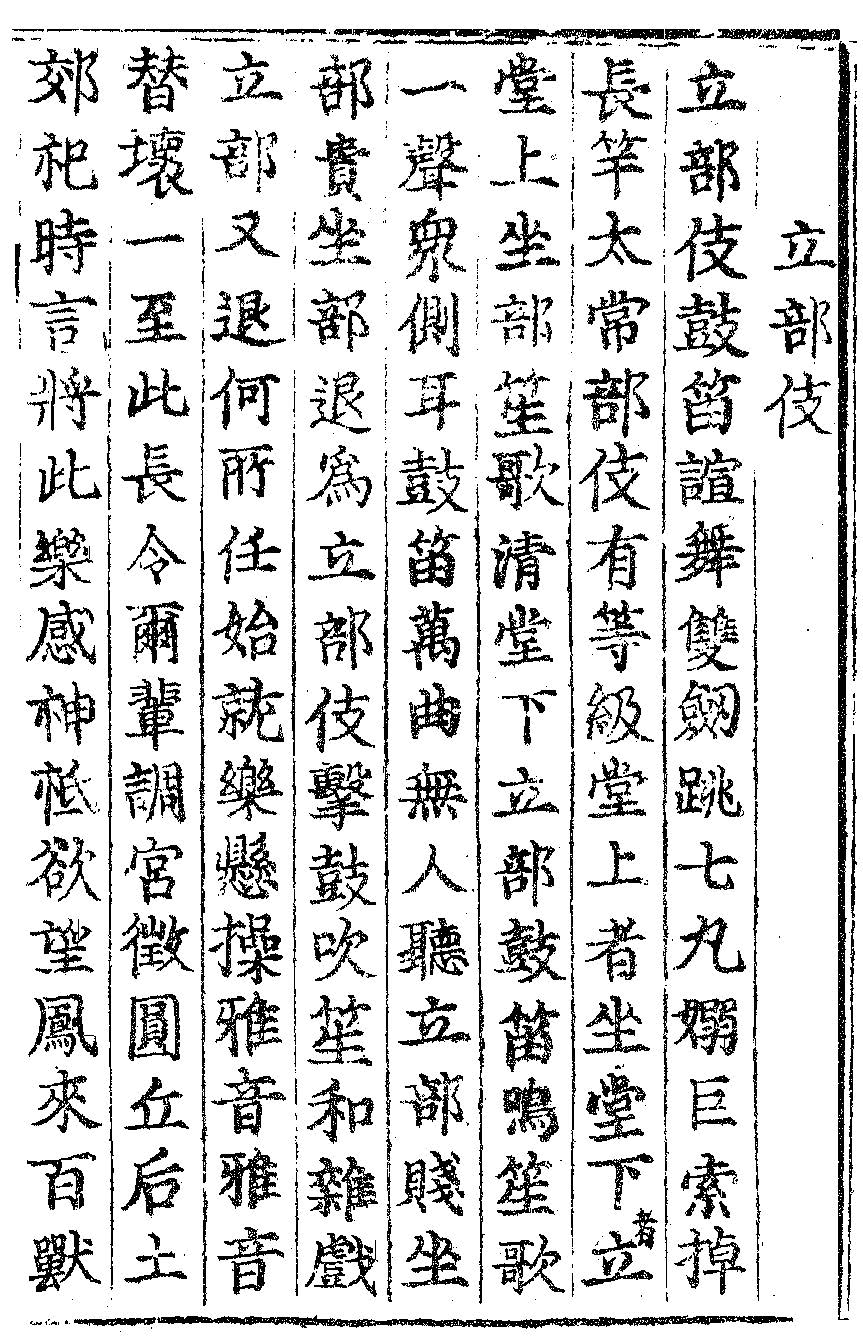 立部伎
立部伎鼓笛諠舞雙劒跳七丸嫋巨索掉
長竿太常部伎有等級堂上者坐堂下者立
堂上坐部笙歌清堂下立部鼓笛鳴笙歌
一聲衆側耳鼓笛萬曲無人聽立部賤坐
部貴坐部退爲立部伎擊鼓吹笙和雜戲
立部又退何所任始就樂懸操雅音雅音
替壞一至此長令爾輩調宮徵圓丘后土
郊祀時言將此樂感神祗欲望鳳來百獸